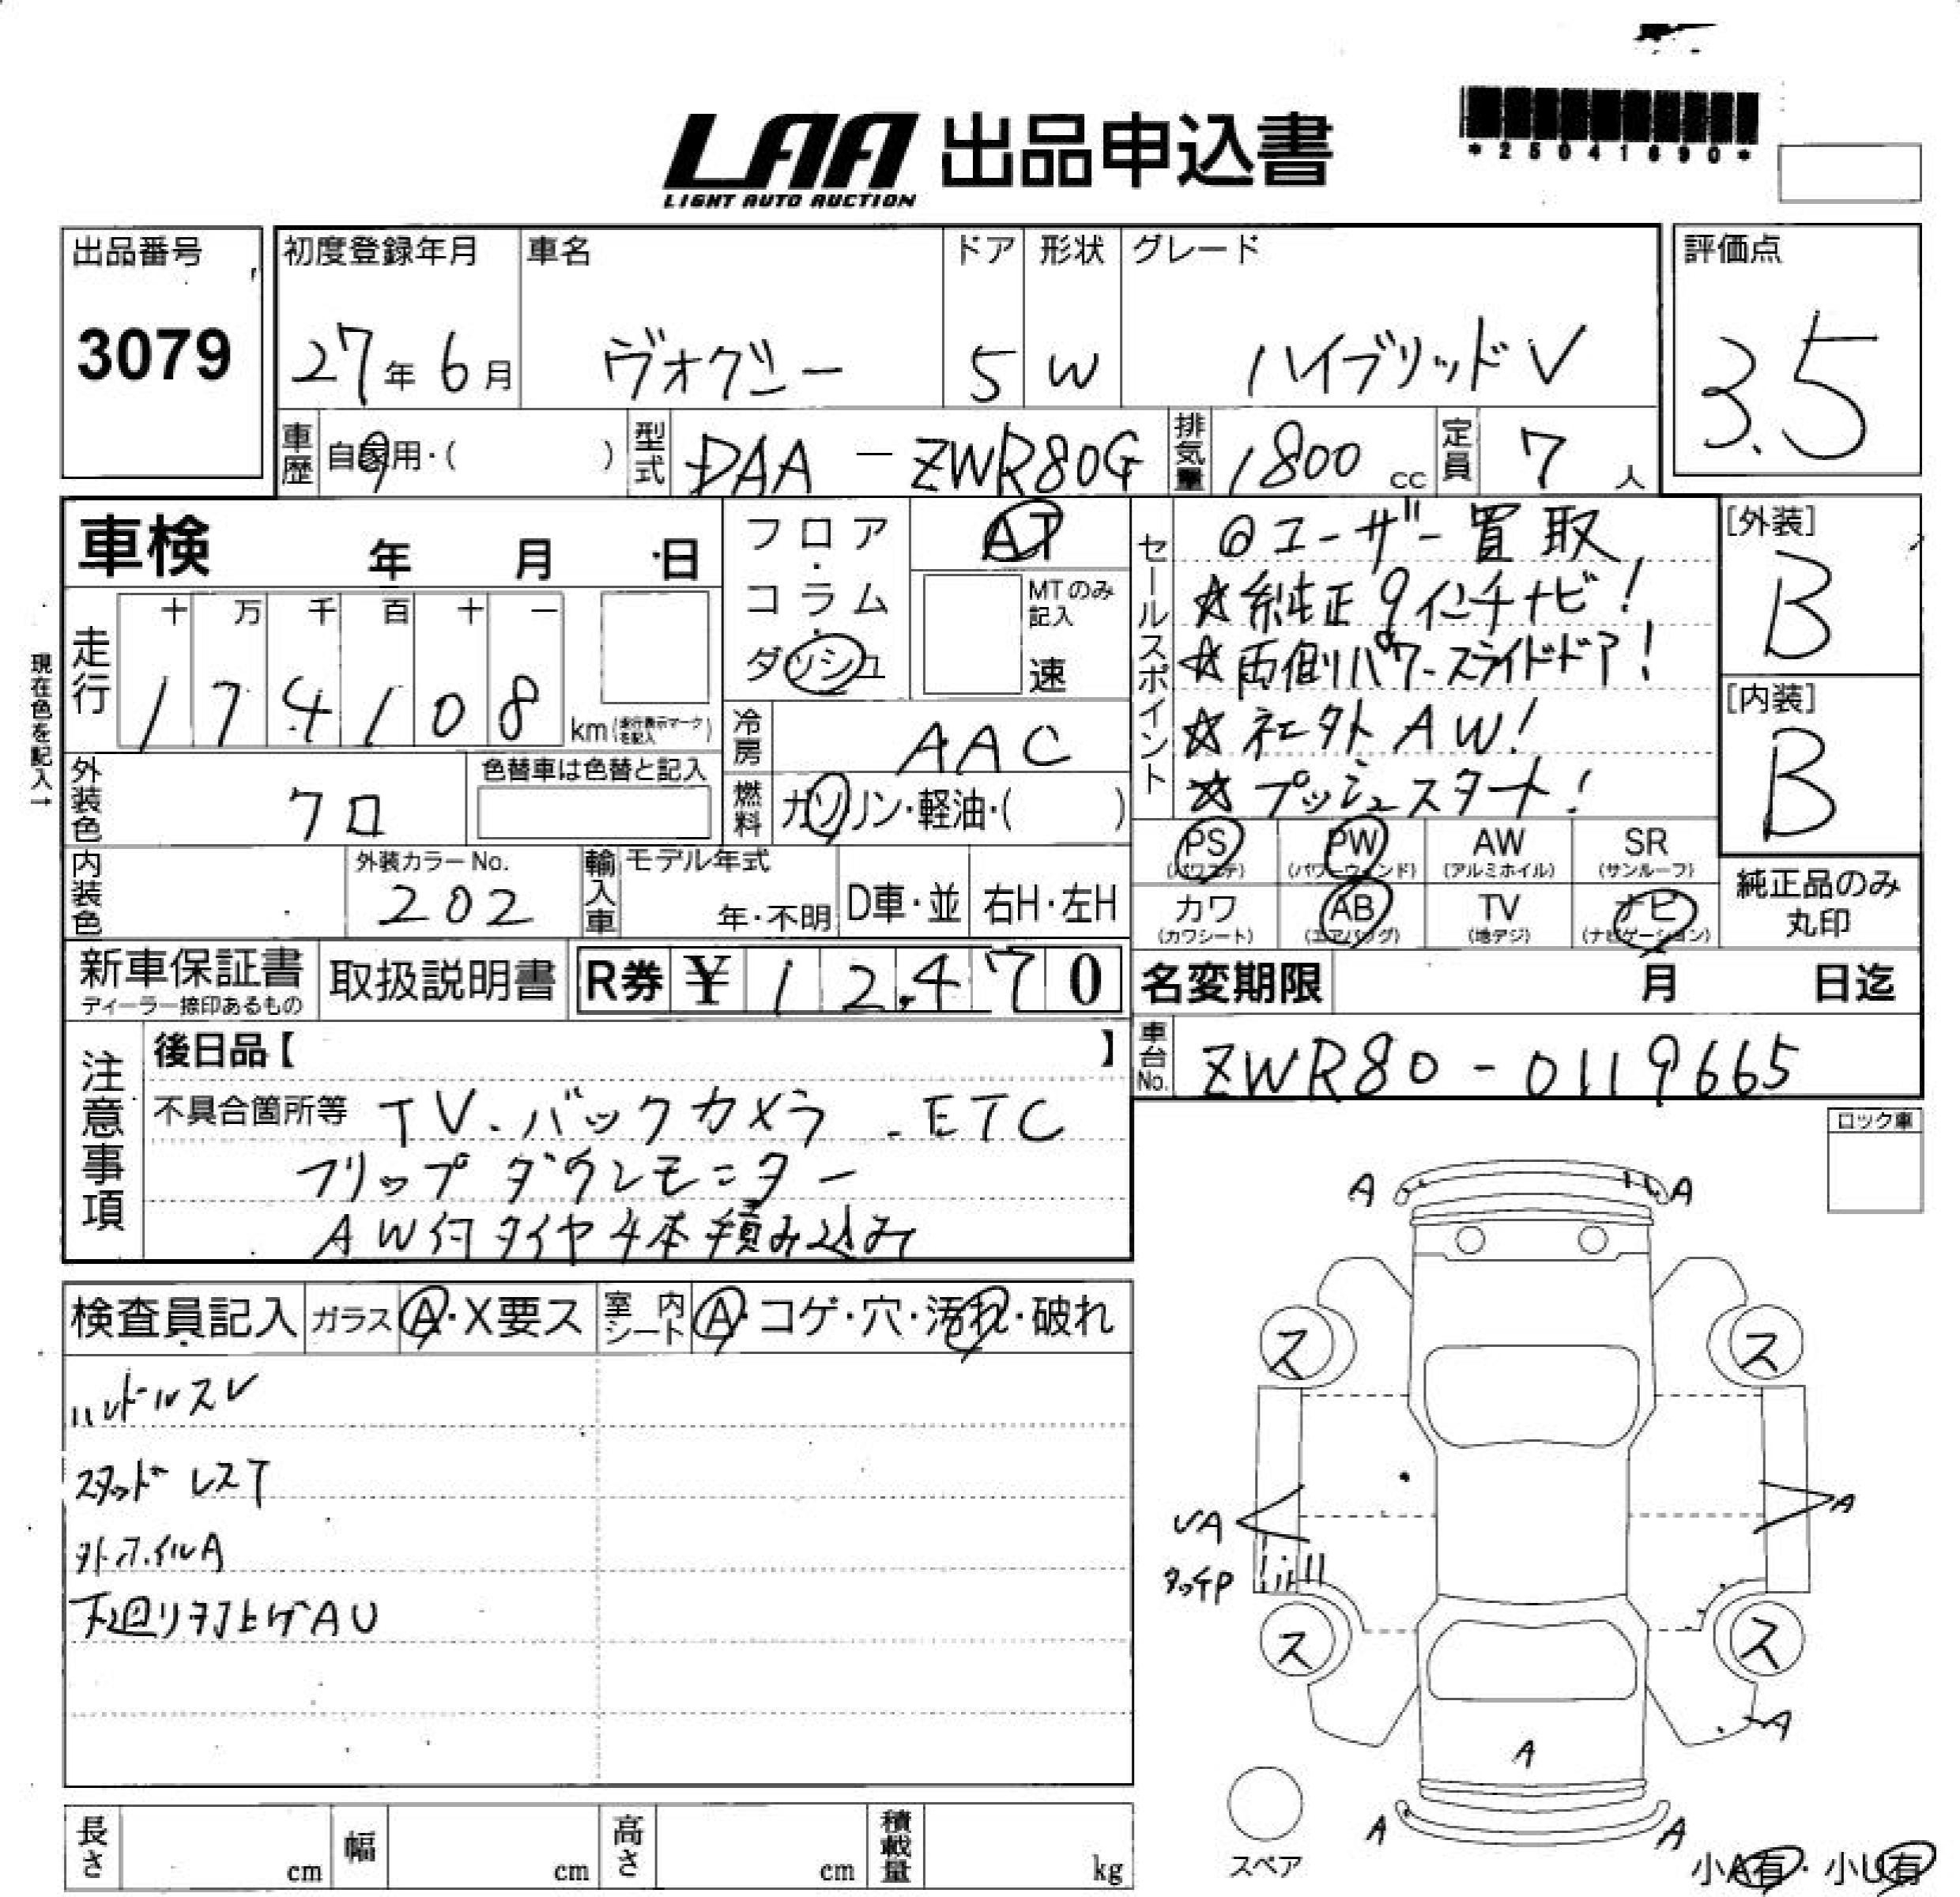 LAA 出品申込書
LIGHT AUTO AUCTION
*25041690*
出品番号
3079
初度登録年月
27年6月
車名
ヴォクシー
ドア
5
形状
W
グレード
ハイブリッドV
評価点
3.5
車歴
自家用・( )
型式
DAA-ZWR80G
排気量
1800cc
定員
7人
車検 年 月 日
フロア・コラム・ダッシュ
AT
MTのみ記入
速
セールスポイント
◎ユーザー買取
☆純正9インチナビ!
☆両側パワースライドドア!
☆社外AW!
☆プッシュスタート!
[外装]
B
[内装]
B
現在色を記入→
走行
十 万 千 百 十 一
174108
km(走行表示マークを記入)
冷房
AAC
燃料
ガソリン・軽油・( )
外装色
クロ
色替車は色替と記入
内装色
外装カラーNo.
202
輸入車
モデル年式
年・不明
D車・並
右H・左H
PS (パワステ)
PW (パワーウィンド)
AW (アルミホイル)
SR (サンルーフ)
カワ (カワシート)
AB (エアバッグ)
TV (地デジ)
ナビ (ナビゲーション)
純正品のみ丸印
新車保証書
ディーラー捺印あるもの
取扱説明書
R券 ¥12,470
名変期限 月 日迄
車台No.
ZWR80-0119665
注意事項
後日品【 】
不具合箇所等 TV.バックカメラ.ETC
フリップダウンモニター
AW付タイヤ4本積み込み
ロック車
検査員記入
ガラス A・X要ス
室内シート A・コゲ・穴・汚れ・破れ
ハンドルスレ
スタッドレスT
外ホイルA
下廻り予上ゲAU
A A
ス ス
レA
A
タッチP
ス ス
A
A
A A
スペア
小A有・小U有
長さ cm
幅 cm
高さ cm
積載量 kg